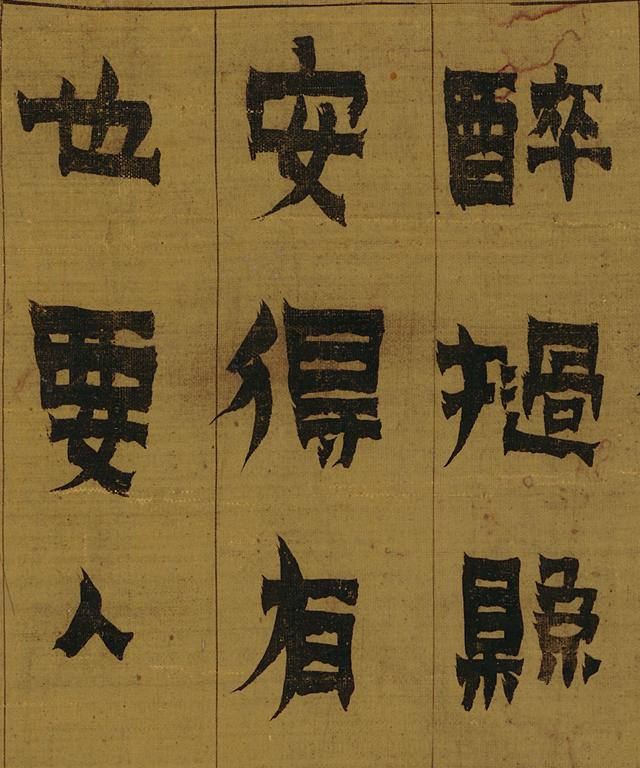 醉撾縣
安得有
也要人